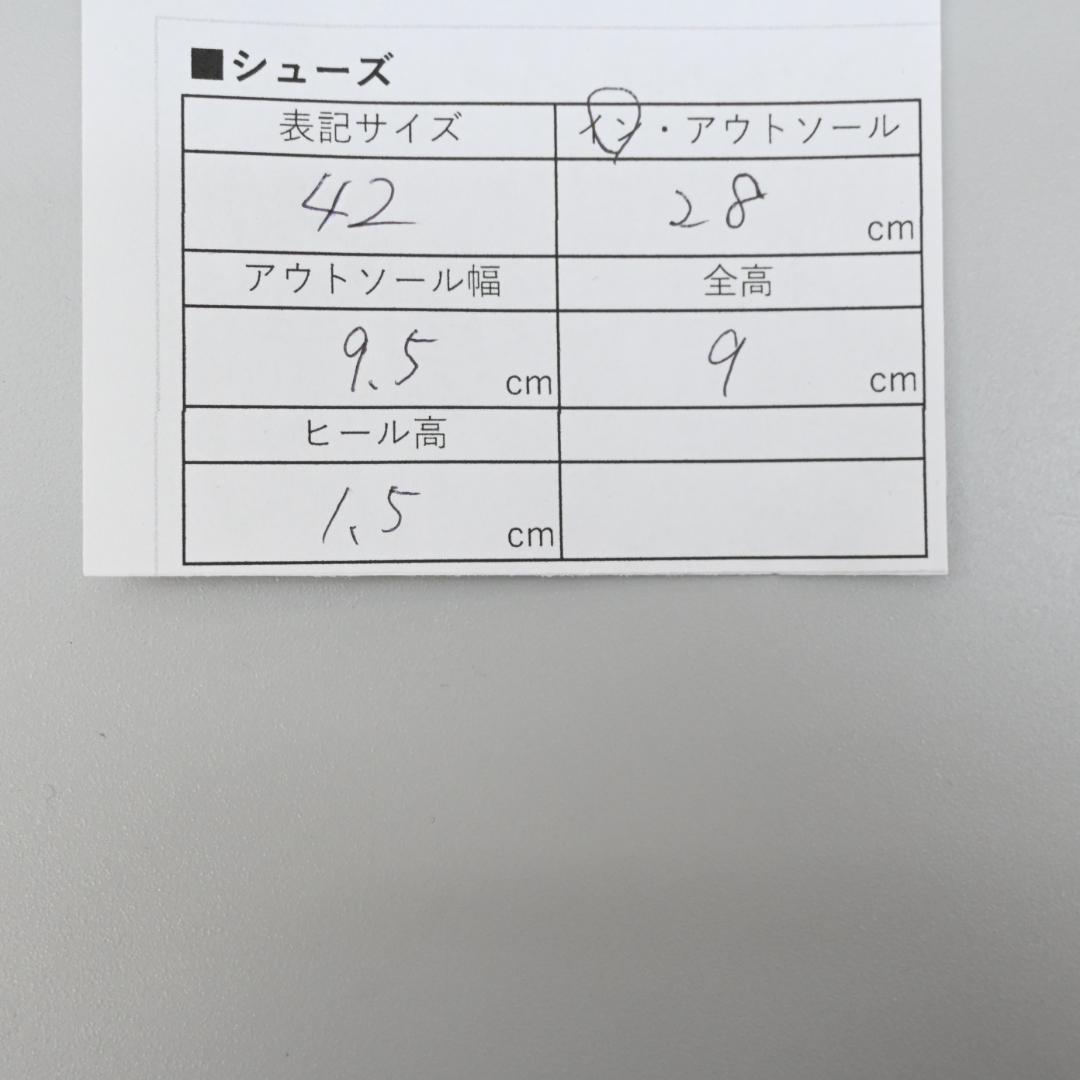 ■シューズ
表記サイズ イン・アウトソール
42 28 cm
アウトソール幅 全高
9.5 cm 9 cm
ヒール高
1.5 cm